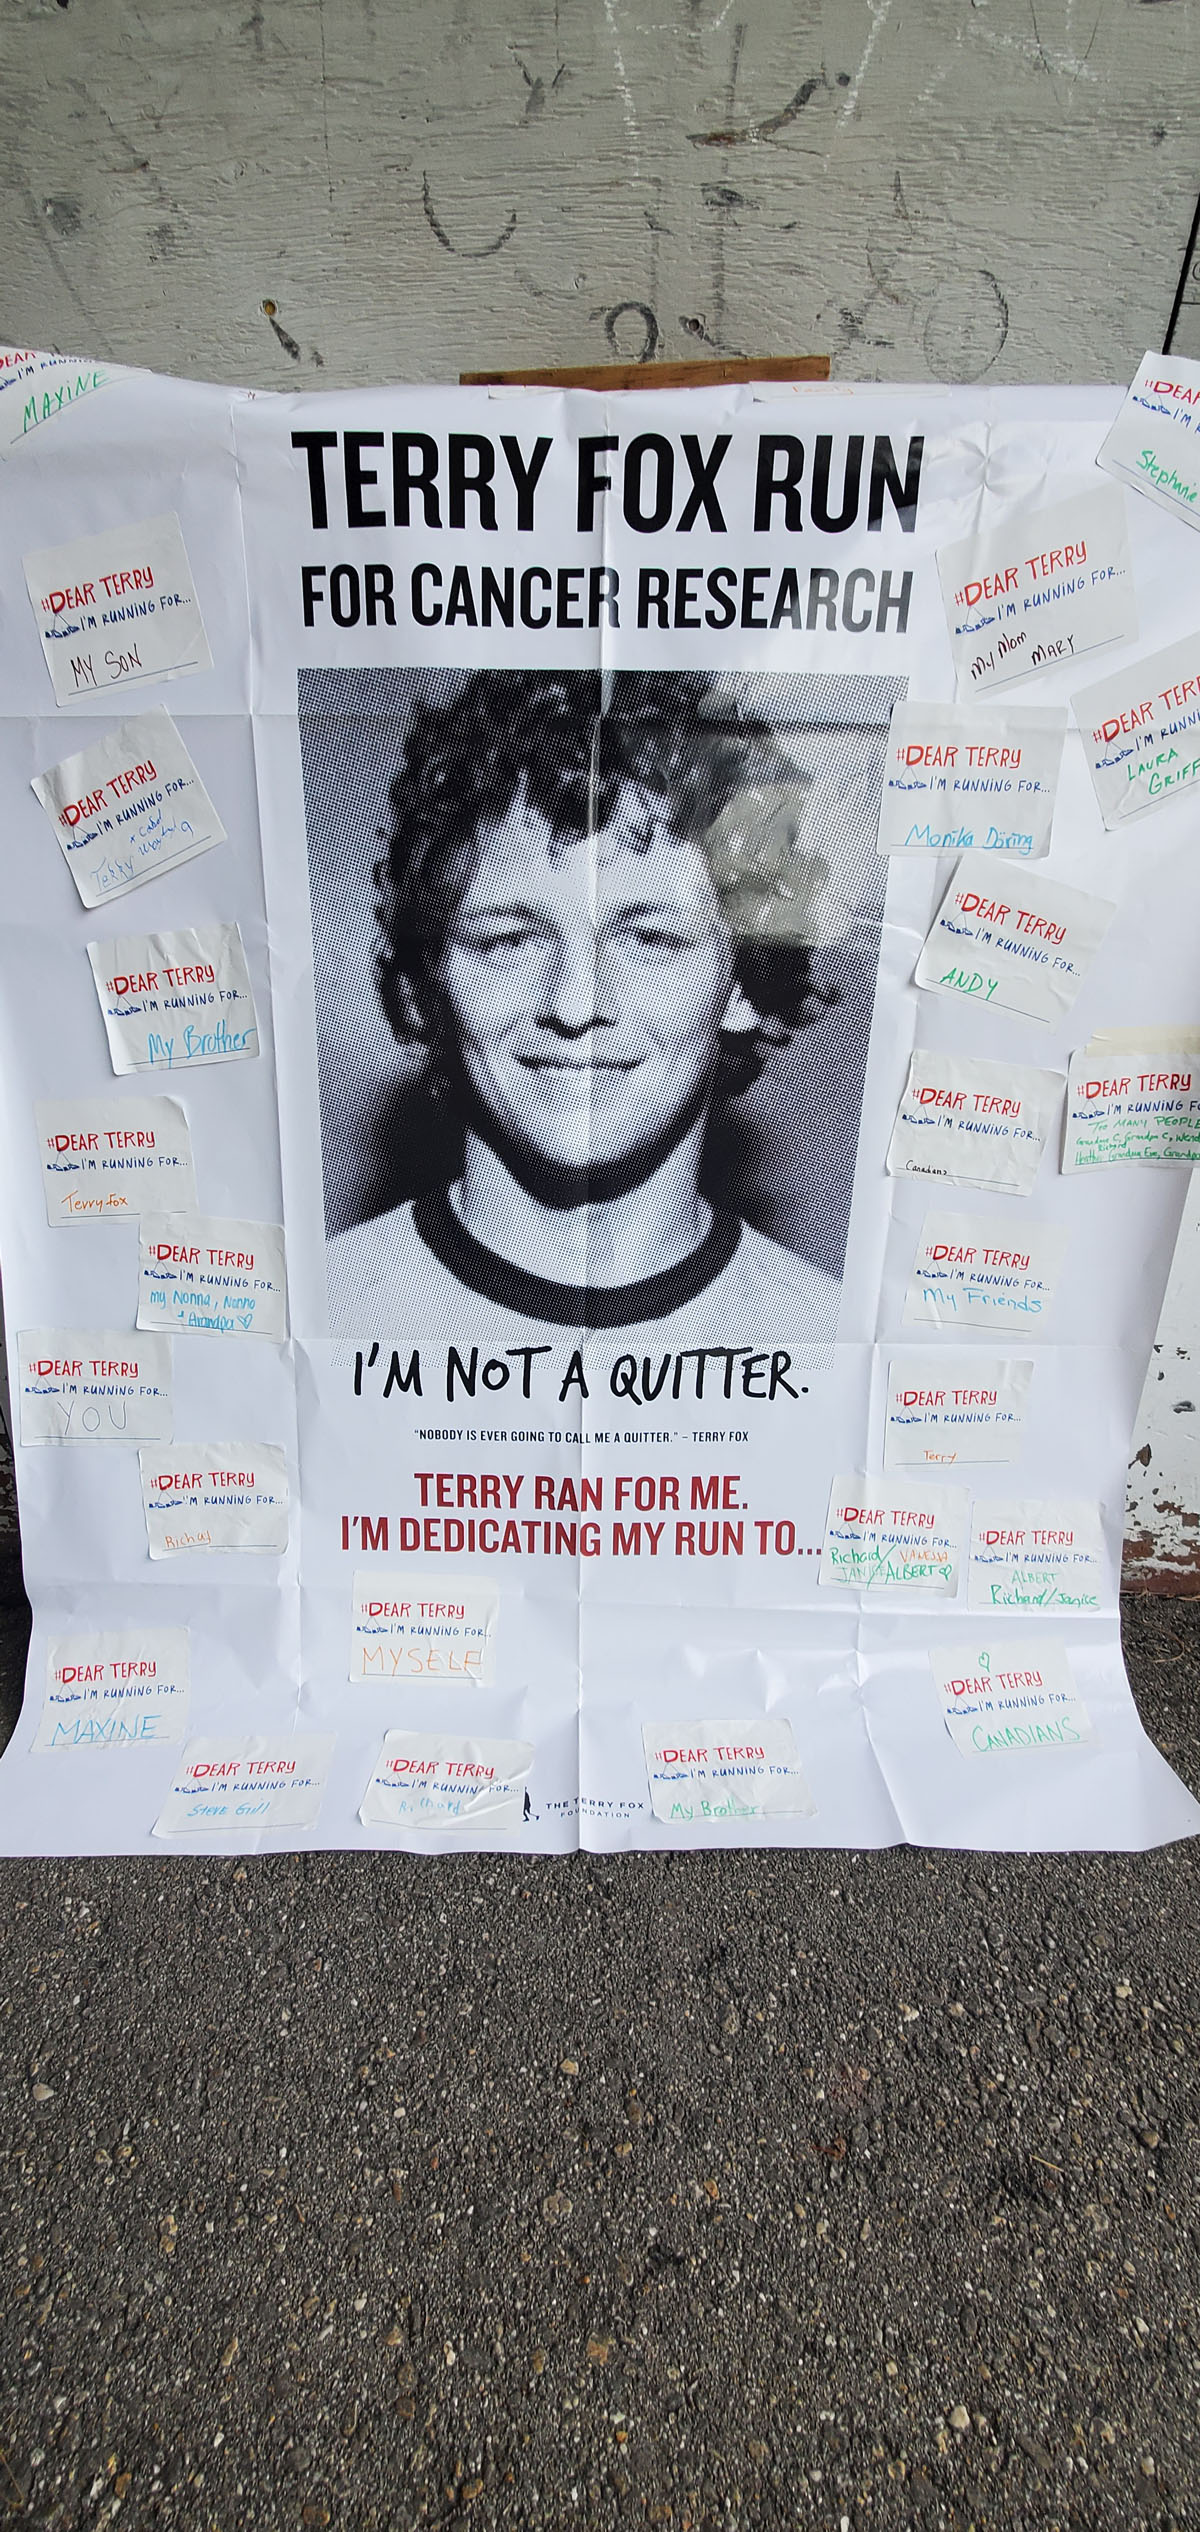 MAXINE
#DEAR
I'M
Stephanie
TERRY FOX RUN
FOR CANCER RESEARCH
#DEAR TERRY
I'M RUNNING FOR...
MY SON
#DEAR TERRY
I'M RUNNING FOR...
My Mom
MARY
#DEAR TERRY
I'M RUNNING FOR...
Terry
#DEAR
LAURA
#DEAR TERRY
I'M RUNNING FOR...
Monika Döring
#DEAR TERRY
I'M RUNNING FOR...
My Brother
#DEAR TERRY
I'M RUNNING FOR...
ANDY
#DEAR TERRY
I'M RUNNING FOR...
Terry fox
#DEAR TERRY
I'M RUNNING FOR...
Canadians
#DEAR TERRY
I'M RUNNING
TOO MANY PEOPLE
Grandma C, Grandpa C,
Richard
Grandma Eve,
#DEAR TERRY
I'M RUNNING FOR...
my Nonna, Nonno
#DEAR TERRY
I'M RUNNING FOR...
My Friends
#DEAR TERRY
I'M RUNNING FOR...
YOU
I'M NOT A QUITTER.
"NOBODY IS EVER GOING TO CALL ME A QUITTER." – TERRY FOX
TERRY RAN FOR ME.
I'M DEDICATING MY RUN TO...
#DEAR TERRY
I'M RUNNING FOR...
Terry
#DEAR TERRY
I'M RUNNING FOR...
#DEAR TERRY
I'M RUNNING FOR...
Richard/ VANESSA
JANICE ALBERT
#DEAR TERRY
I'M RUNNING FOR...
ALBERT
Richard/Janice
#DEAR TERRY
I'M RUNNING FOR...
MYSELF
#DEAR TERRY
I'M RUNNING FOR...
MAXINE
#DEAR TERRY
I'M RUNNING FOR...
CANADIANS
#DEAR TERRY
I'M RUNNING FOR...
STEVE Gill
#DEAR TERRY
I'M RUNNING FOR...
Richard
THE TERRY FOX
FOUNDATION
#DEAR TERRY
I'M RUNNING FOR...
My Brother